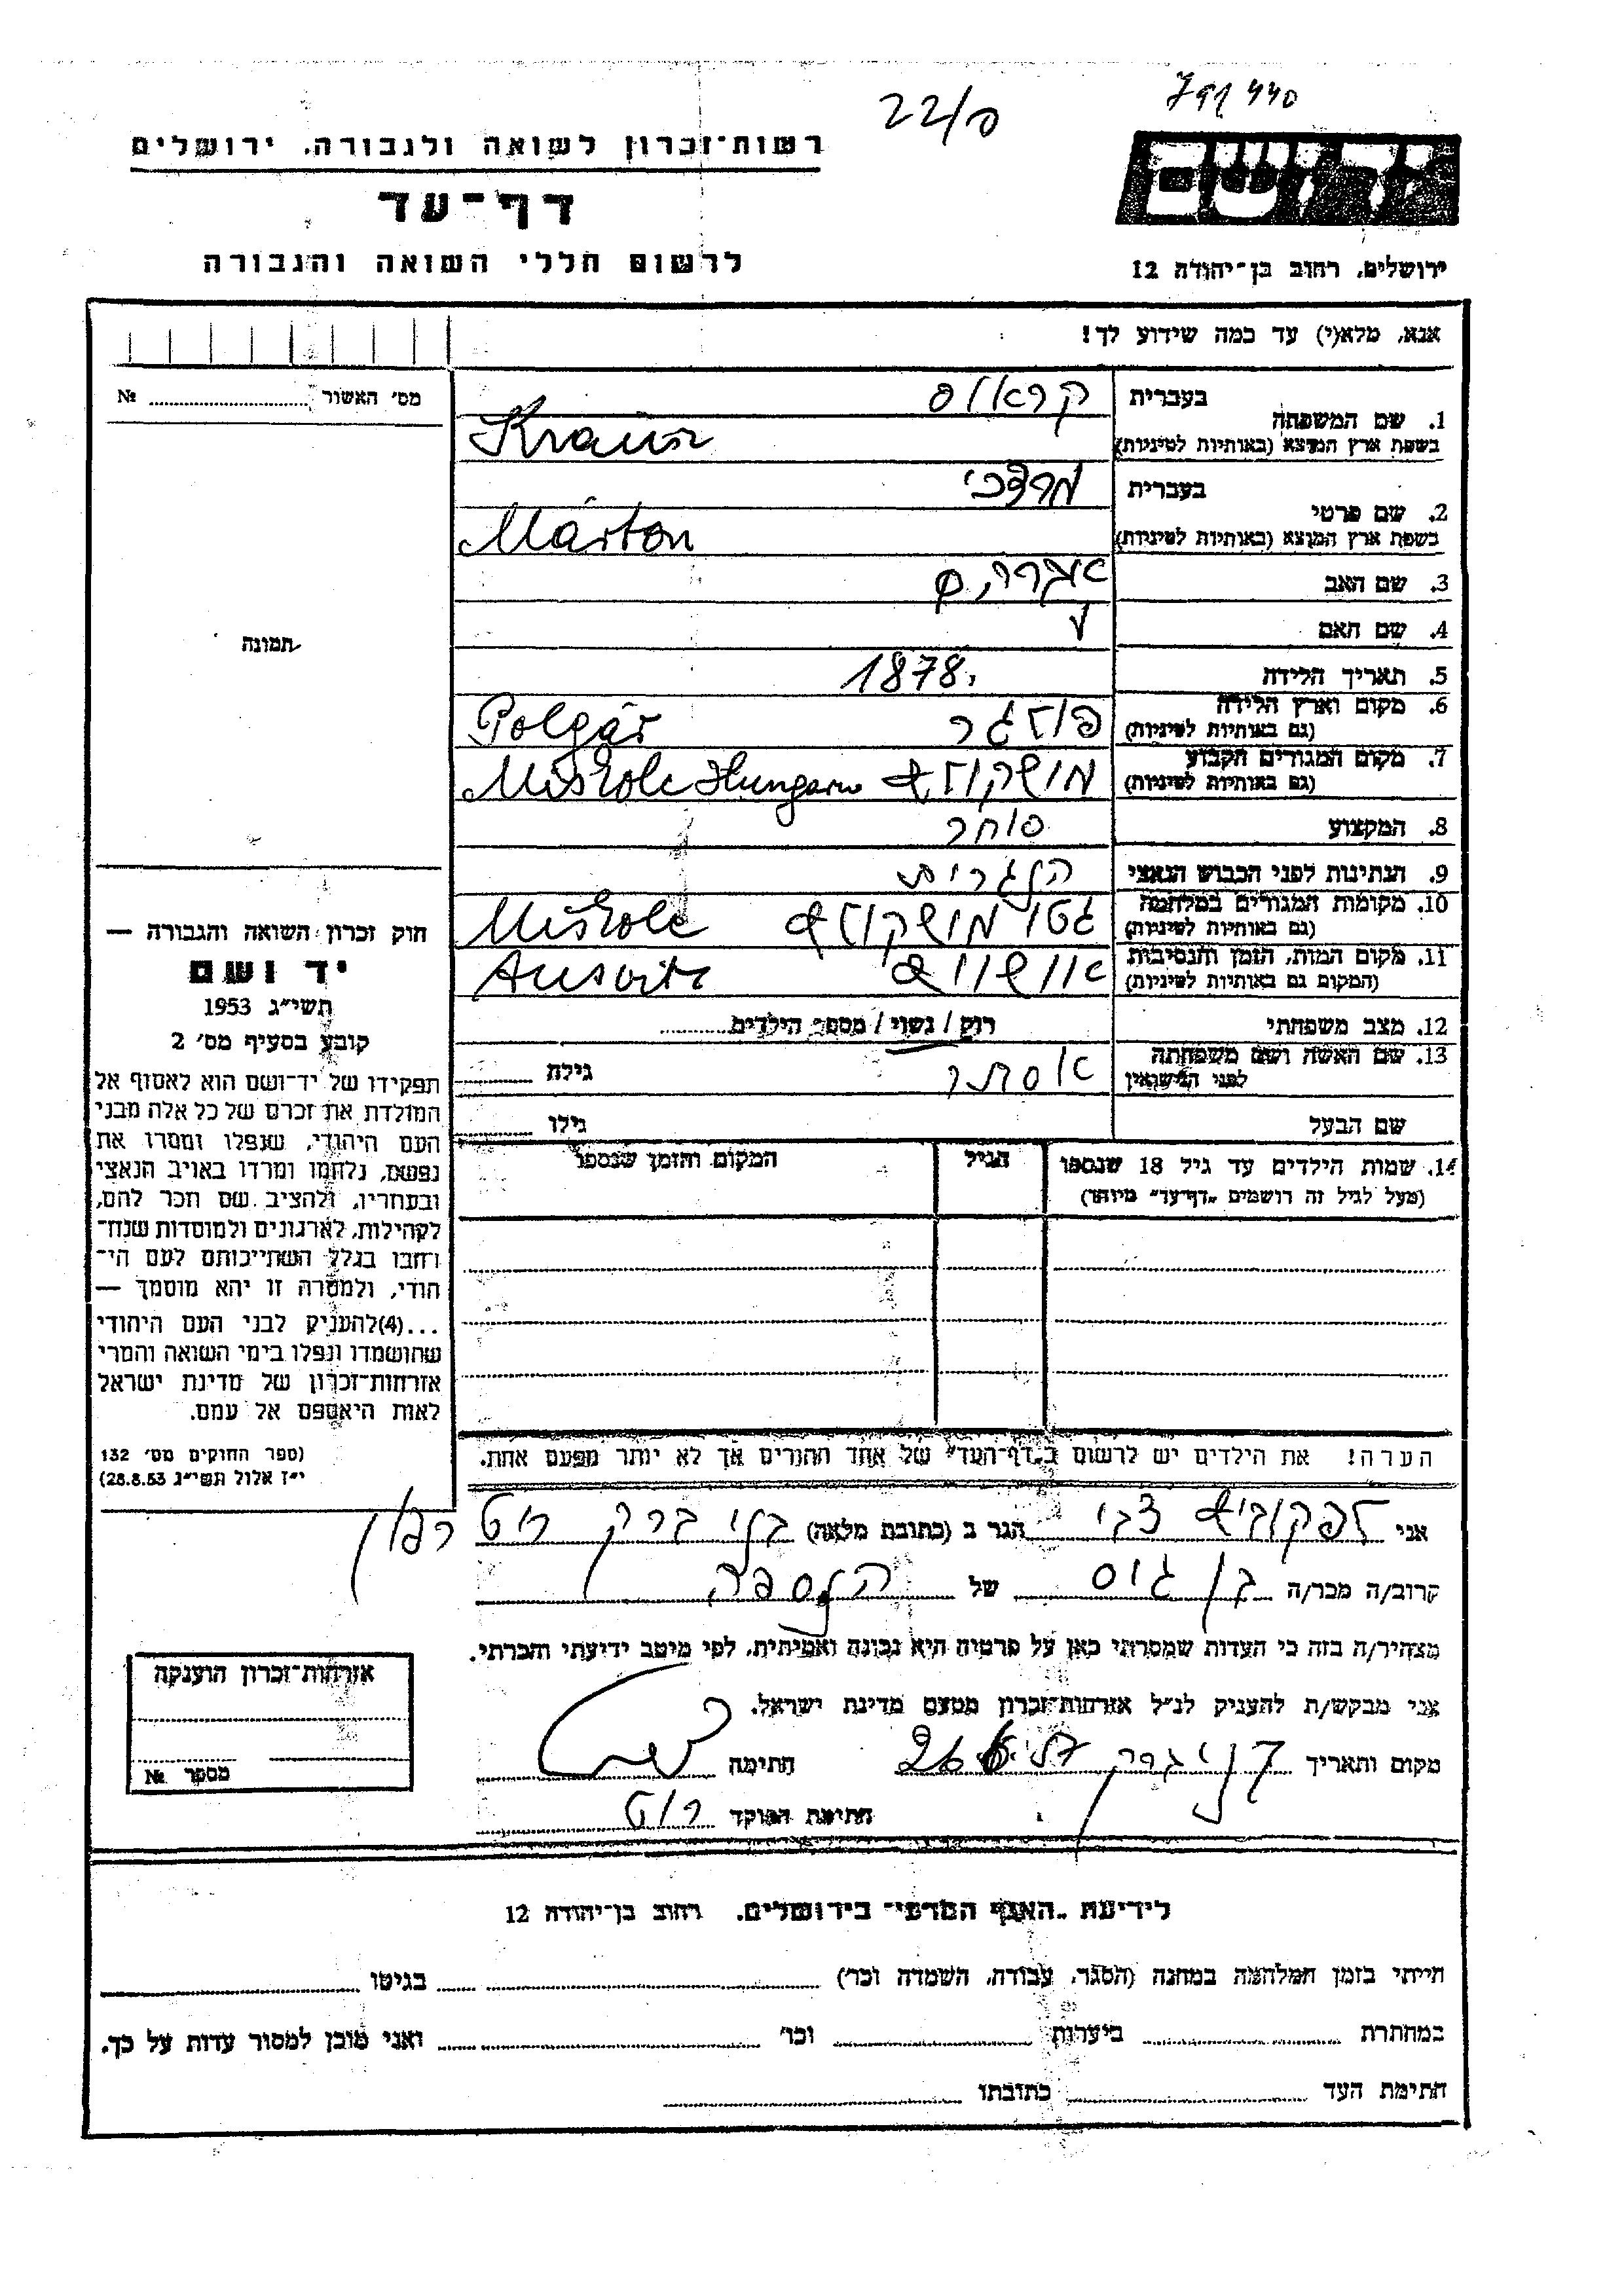 22/ס
רשות־זכרון לשואה ולגבורה, ירושלים
דף־עד
לרשום חללי השואה והגבורה
ירושלים, רחוב בן־יהודה 12
אנא, מלא(י) עד כמה שידוע לך!
מס׳ האשור № 
בעברית קראוס
1. שם המשפחה
בשפת ארץ המוצא (באותיות לטיניות) Krausz
בעברית מרדכי
2. שם פרטי
בשפת ארץ המוצא (באותיות לטיניות) Márton
3. שם האב אברהם
4. שם האם
5. תאריך הלידה 1878.
6. מקום וארץ הלידה פולגר Polgár
(גם באותיות לטיניות)
7. מקום המגורים הקבוע מישקולץ Miskolc Hungary
(גם באותיות לטיניות)
8. המקצוע סוחר
9. הנתינות לפני הכבוש הנאצי הונגרית
10. מקומות המגורים במלחמה גטו מישקולץ Miskolc
(גם באותיות לטיניות)
11. מקום המות, הזמן והנסיבות אושוויץ Ausvitz
(המקום גם באותיות לטיניות)
12. מצב משפחתי רוק / נשוי / מספר הילדים
13. שם האשה ושם משפחתה אסתר גילה
לפני הנישואין
שם הבעל גילו
14. שמות הילדים עד גיל 18 שנספו הגיל המקום והזמן שנספו
(מעל לגיל זה רושמים „דף־עד״ מיוחד)
הערה! את הילדים יש לרשום ב„דף־העד״ של אחד ההורים אך לא יותר מפעם אחת.
תמונה
חוק זכרון השואה והגבורה —
יד ושם
תשי״ג 1953
קובע בסעיף מס׳ 2
תפקידו של יד־ושם הוא לאסוף אל
המולדת את זכרם של כל אלה מבני
העם היהודי, שנפלו ומסרו את
נפשם, נלחמו ומרדו באויב הנאצי
ובעוזריו, ולהציב שם וזכר להם,
לקהילות, לארגונים ולמוסדות שנח־
רבו בגלל השתייכותם לעם הי־
הודי, ולמטרה זו יהא מוסמך —
...(4)להעניק לבני העם היהודי
שהושמדו ונפלו בימי השואה והמרי
אזרחות־זכרון של מדינת ישראל
לאות היאספם אל עמם.
(ספר החוקים מס׳ 132
י״ז אלול תשי״ג 28.8.53)
אני לפקוביץ צבי הגר ב (כתובת מלאה) בני ברק
קרוב/ה מכר/ה בן גיס של הנספה
מצהיר/ה בזה כי העדות שמסרתי כאן על פרטיה היא נכונה ואמיתית, לפי מיטב ידיעתי והכרתי.
אני מבקש/ת להעניק לנ״ל אזרחות־זכרון מטעם מדינת ישראל.
מקום ותאריך בני ברק חתימה
חתימת הפוקד רוט
אזרחות־זכרון הוענקה
מספר №
לידיעת „האגף המדעי״ בירושלים, רחוב בן־יהודה 12
הייתי בזמן המלחמה במחנה (הסגר, עבודה, השמדה וכו׳) בגיטו
במחתרת ביערות וכו׳ ואני מוכן למסור עדות על כך.
חתימת העד כתובתו